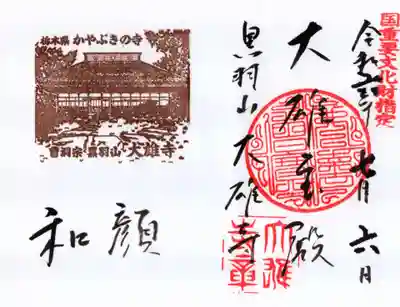 国重要文化財指定
七月六日
大雄宝殿
黒羽山大雄寺
栃木県 かやぶきの寺
曹洞宗 黒羽山 大雄寺
和顔